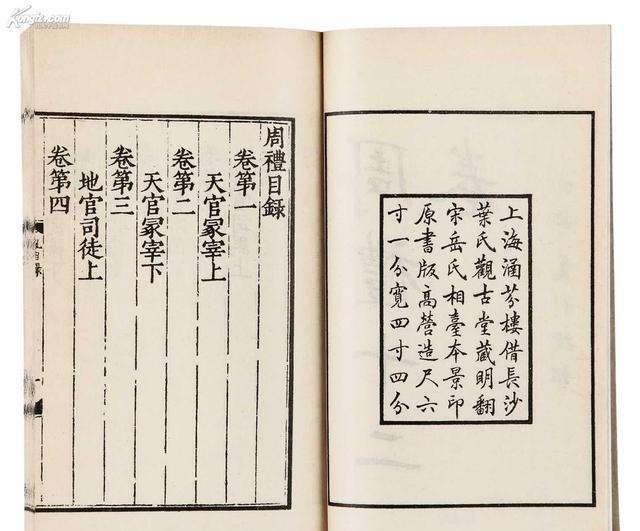 Kongfz.com
上海涵芬樓借長沙
葉氏觀古堂藏明翻
宋岳氏相臺本景印
原書版高營造尺六
寸一分寬四寸四分
周禮目錄
卷第一
天官冢宰上
卷第二
天官冢宰下
卷第三
地官司徒上
卷第四